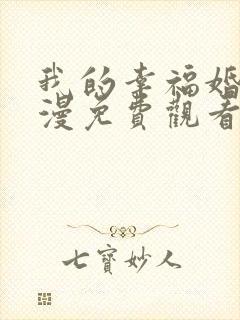 我的幸福婚
漫免費觀看
七寶妙人